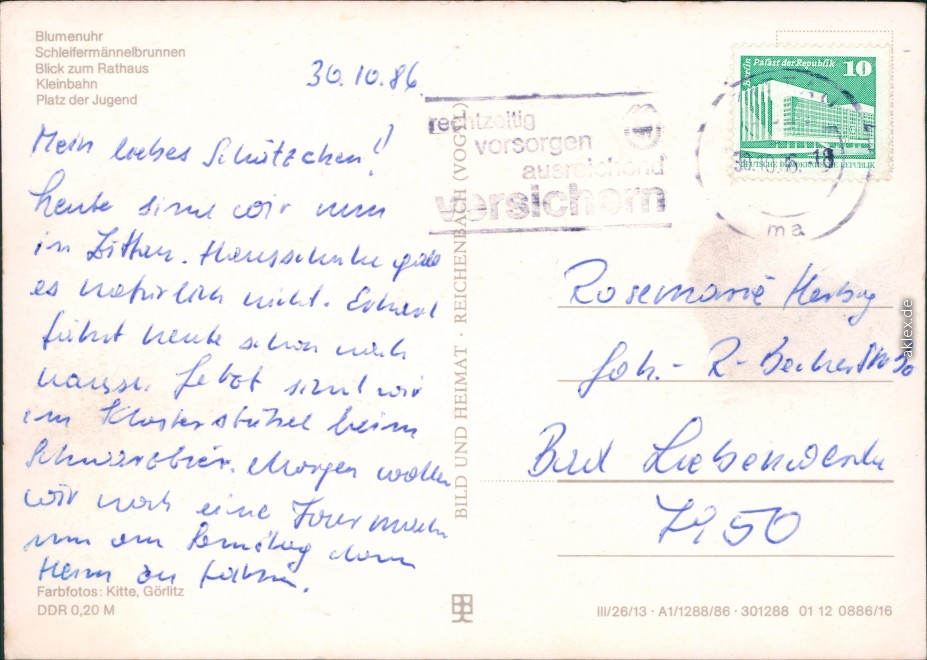 Blumenuhr
Schleifermännelbrunnen
Blick zum Rathaus
Kleinbahn
Platz der Jugend
30.10.86.
Mein liebes Schätzchen!
heute sind wir nun
in Zittau. Hausschuhe gab
es natürlich nicht. Erhard
fährt heute schon nach
hause. Jetzt sind wir
im Klosterstübel beim
Schwarzbier. Morgen wollen
wir noch eine Tour machen
um am Samstag dann
Heim zu fahren.
Farbfotos: Kitte, Görlitz
DDR 0,20 M
BILD UND HEIMAT · REICHENBACH (VOGTL)
rechtzeitig
vorsorgen
ausreichend
versichern
Berlin Palast der Republik 10
DEUTSCHE DEMOKRATISCHE REPUBLIK
18
ma
Rosemarie
Joh.- R- Becher Str
Bad Liebenwerda
7950
III/26/13 · A1/1288/86 · 301288 01 12 0886/16
aklex.de